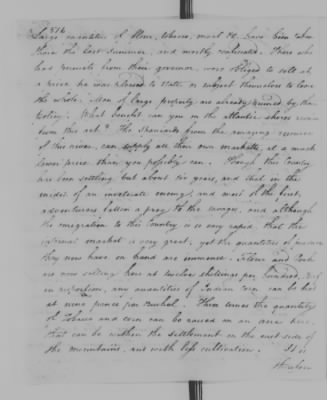 Large quantities of flour, tobacco, meal &c. have been taken
there the last summer, and mostly confiscated. Those who
had permits from their governor, were obliged to sell at
a price he was pleased to state, or subject themselves to lose
the whole. Men of large property are already ruined by this
policy. What benefit can you on the atlantic shores receive
from this act? The Spaniards from the amazing resources
of this river, can supply all their own markets, at a much
lower price than you possibly can. Though this Country
has been settling but about six years, and that in the
midst of an inveterate enemy, and most of the first
adventurers fallen a prey to the savages, and although
the emigration to this Country is so very rapid, that the
internal market is very great, yet the quantities of produce
they now have on hand are immense. Flour and Pork
are now selling here at twelve shillings per hundred, Beef
in proportion, any quantities of Indian corn can be had
at nine pence per Bushel. Three times the quantity
of Tobacco and corn can be raised on an acre here,
that can be within the settlement on the east side of
the mountains, and with less cultivation. It is
therefore